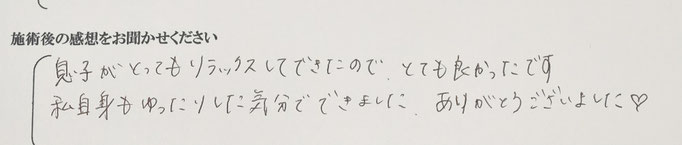 施術後の感想をお聞かせください
息子がとってもリラックスしてできたので、とても良かったです
私自身もゆったりした気分でできました。ありがとうございました♡